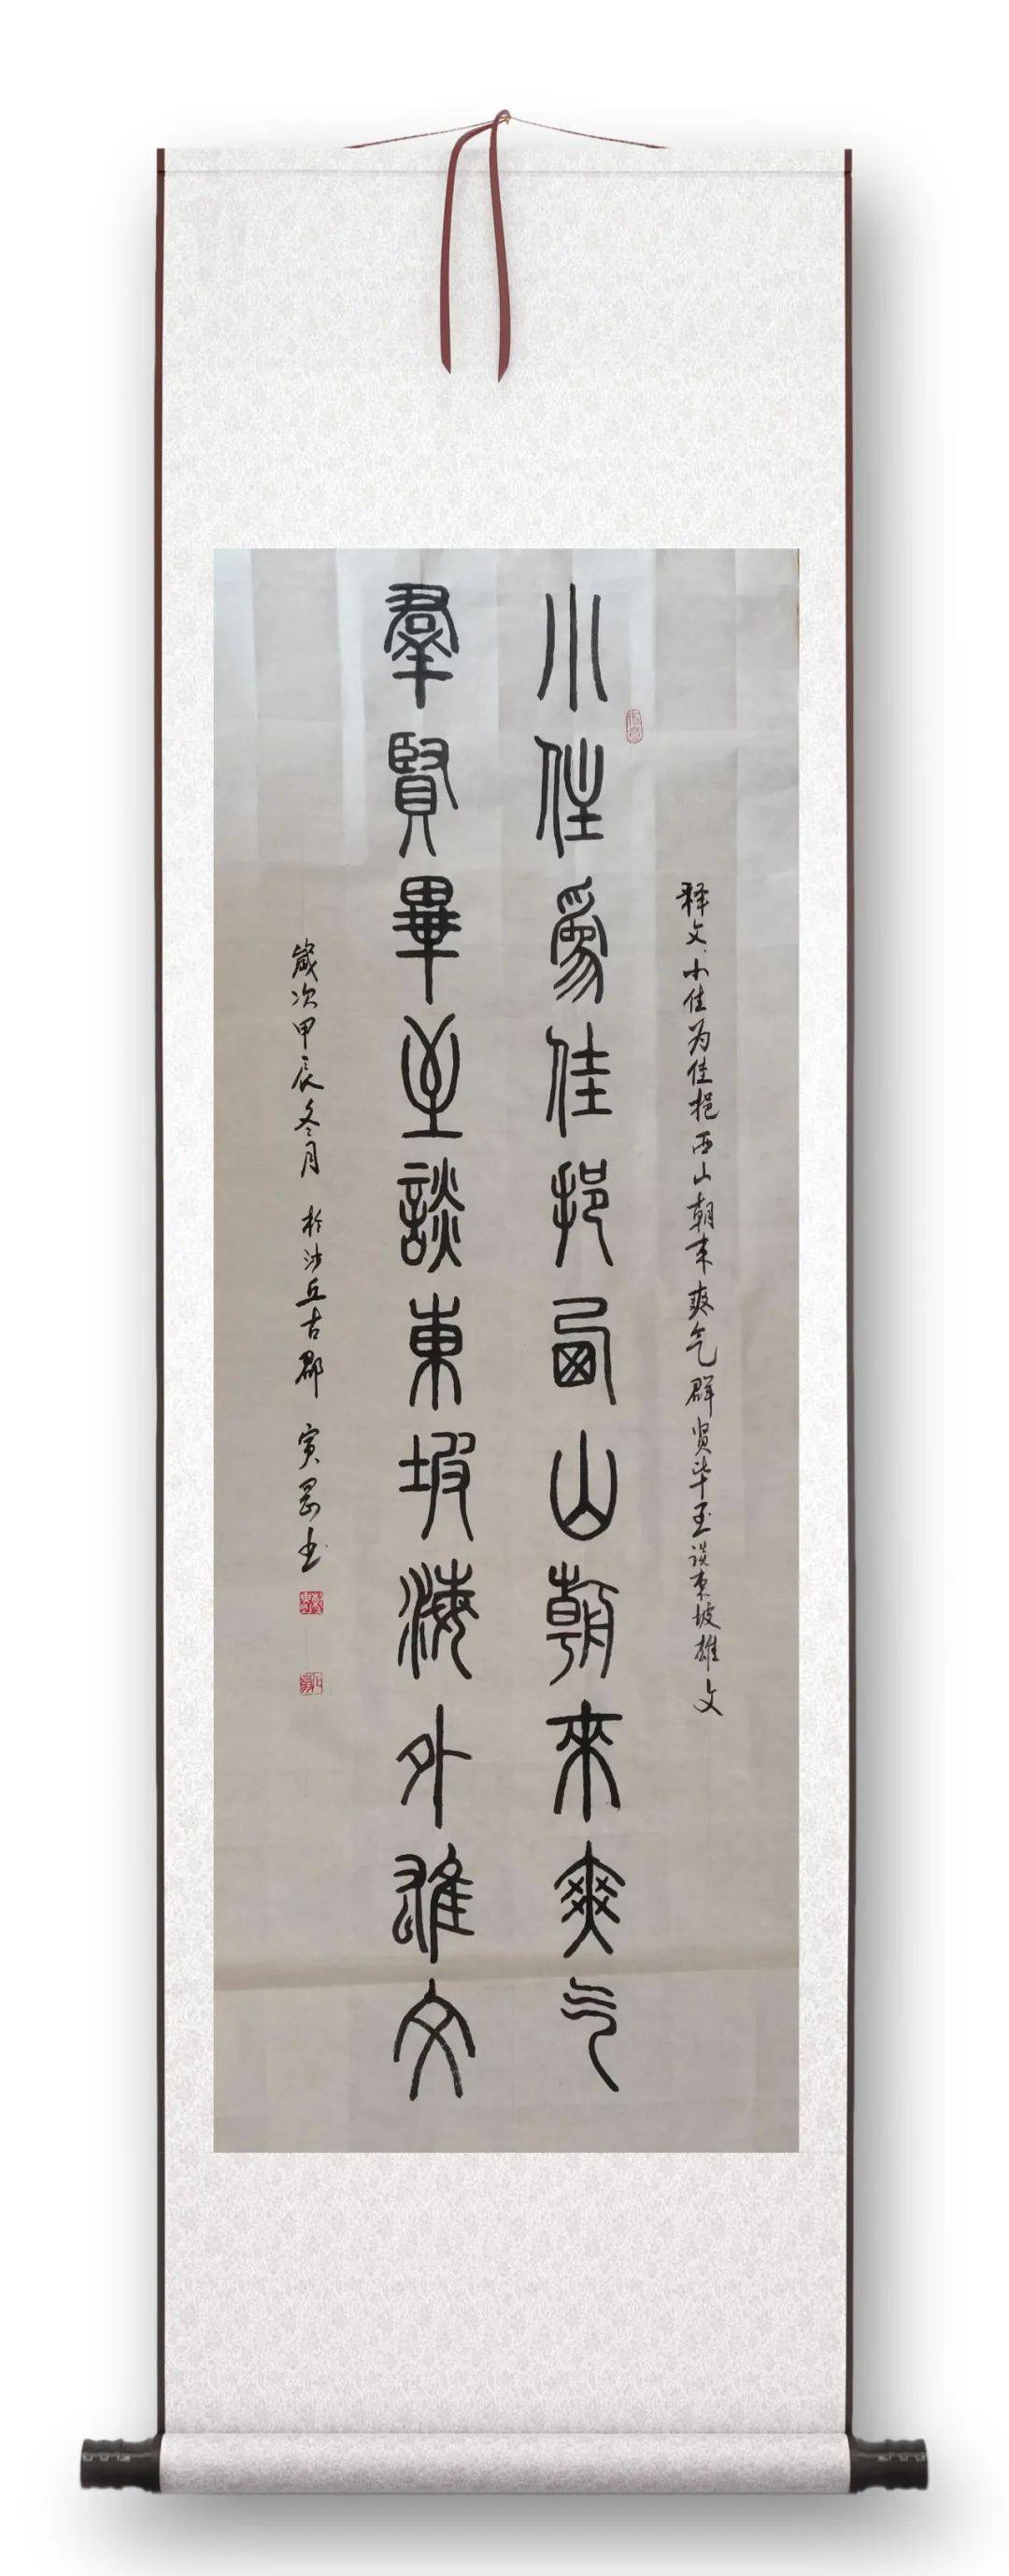 释文、小住为佳挹西山朝来爽气群贤毕至谈东坡雄文
小住爲佳挹西山朝來爽气
羣賢畢至談東坡海外雄文
歲次甲辰冬月 於沙丘古郡 寅书